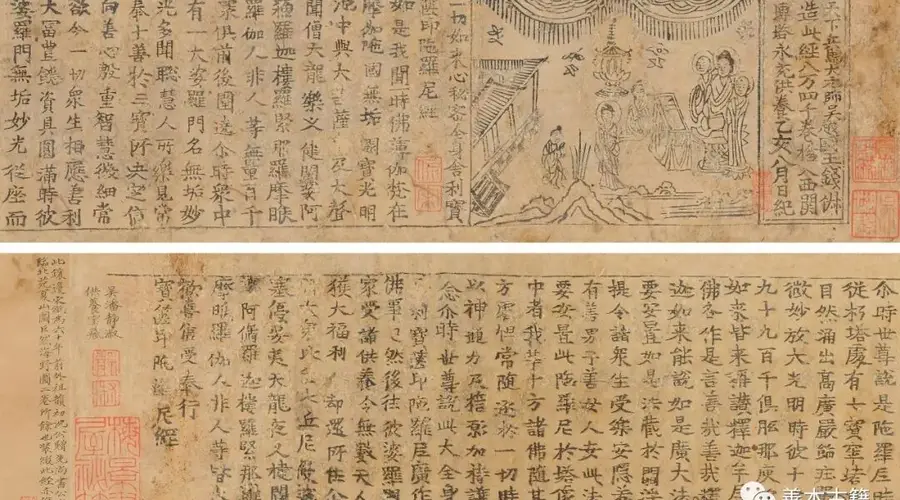 天下兵馬大元帥吳越國王錢俶
造此經八万四千卷捨入西關
塼塔永充供養乙亥八月日紀
一切如來心秘密全身舍利寶
篋印陁羅尼經
如是我聞一時佛薄伽梵在
摩伽陁國無垢園寶光明
池中與大菩薩衆及大聲
聞僧天龍藥叉健闥婆阿
蘇羅迦樓羅緊那羅摩睺
羅伽人非人等無量百千
衆俱前後圍遶尒時衆中
有一大婆羅門名無垢妙
光多聞聡慧人所樂見常
奉十善於三寶所決定信
向善心殷重智慧微細常
欲令一切衆生相應善利
大富豐饒資具圓滿時彼
婆羅門無垢妙光從座而
尒時世尊說是陁羅尼時
從朽塔處有七寶窣堵
自然涌出高廣嚴飾莊
微妙放大光明時彼十
九十九百千俱胝那庾
如來皆來稱讚釋迦牟
佛各作是言善哉善哉
迦如來能說如是廣大法
要安置如是法藏於閻
提令諸衆生受樂安隱
有善男子善女人安此法
要安置此陁羅尼於塔像
中者我等十方諸佛隨其
方處恒常隨逐於一切時
以神通力及擔願加持護
念尒時世尊說此大全身
利寶篋印陁羅尼廣作
佛事已然後往彼婆羅
家受諸供養令無數天人
獲大福利却還所住
大衆比丘尼優婆
塞優婆夷天龍夜叉犍闥
婆阿修羅迦樓羅緊那
摩睺羅伽人非人等皆
歡喜信受奉行
寶篋印陁羅尼經
善本古籍